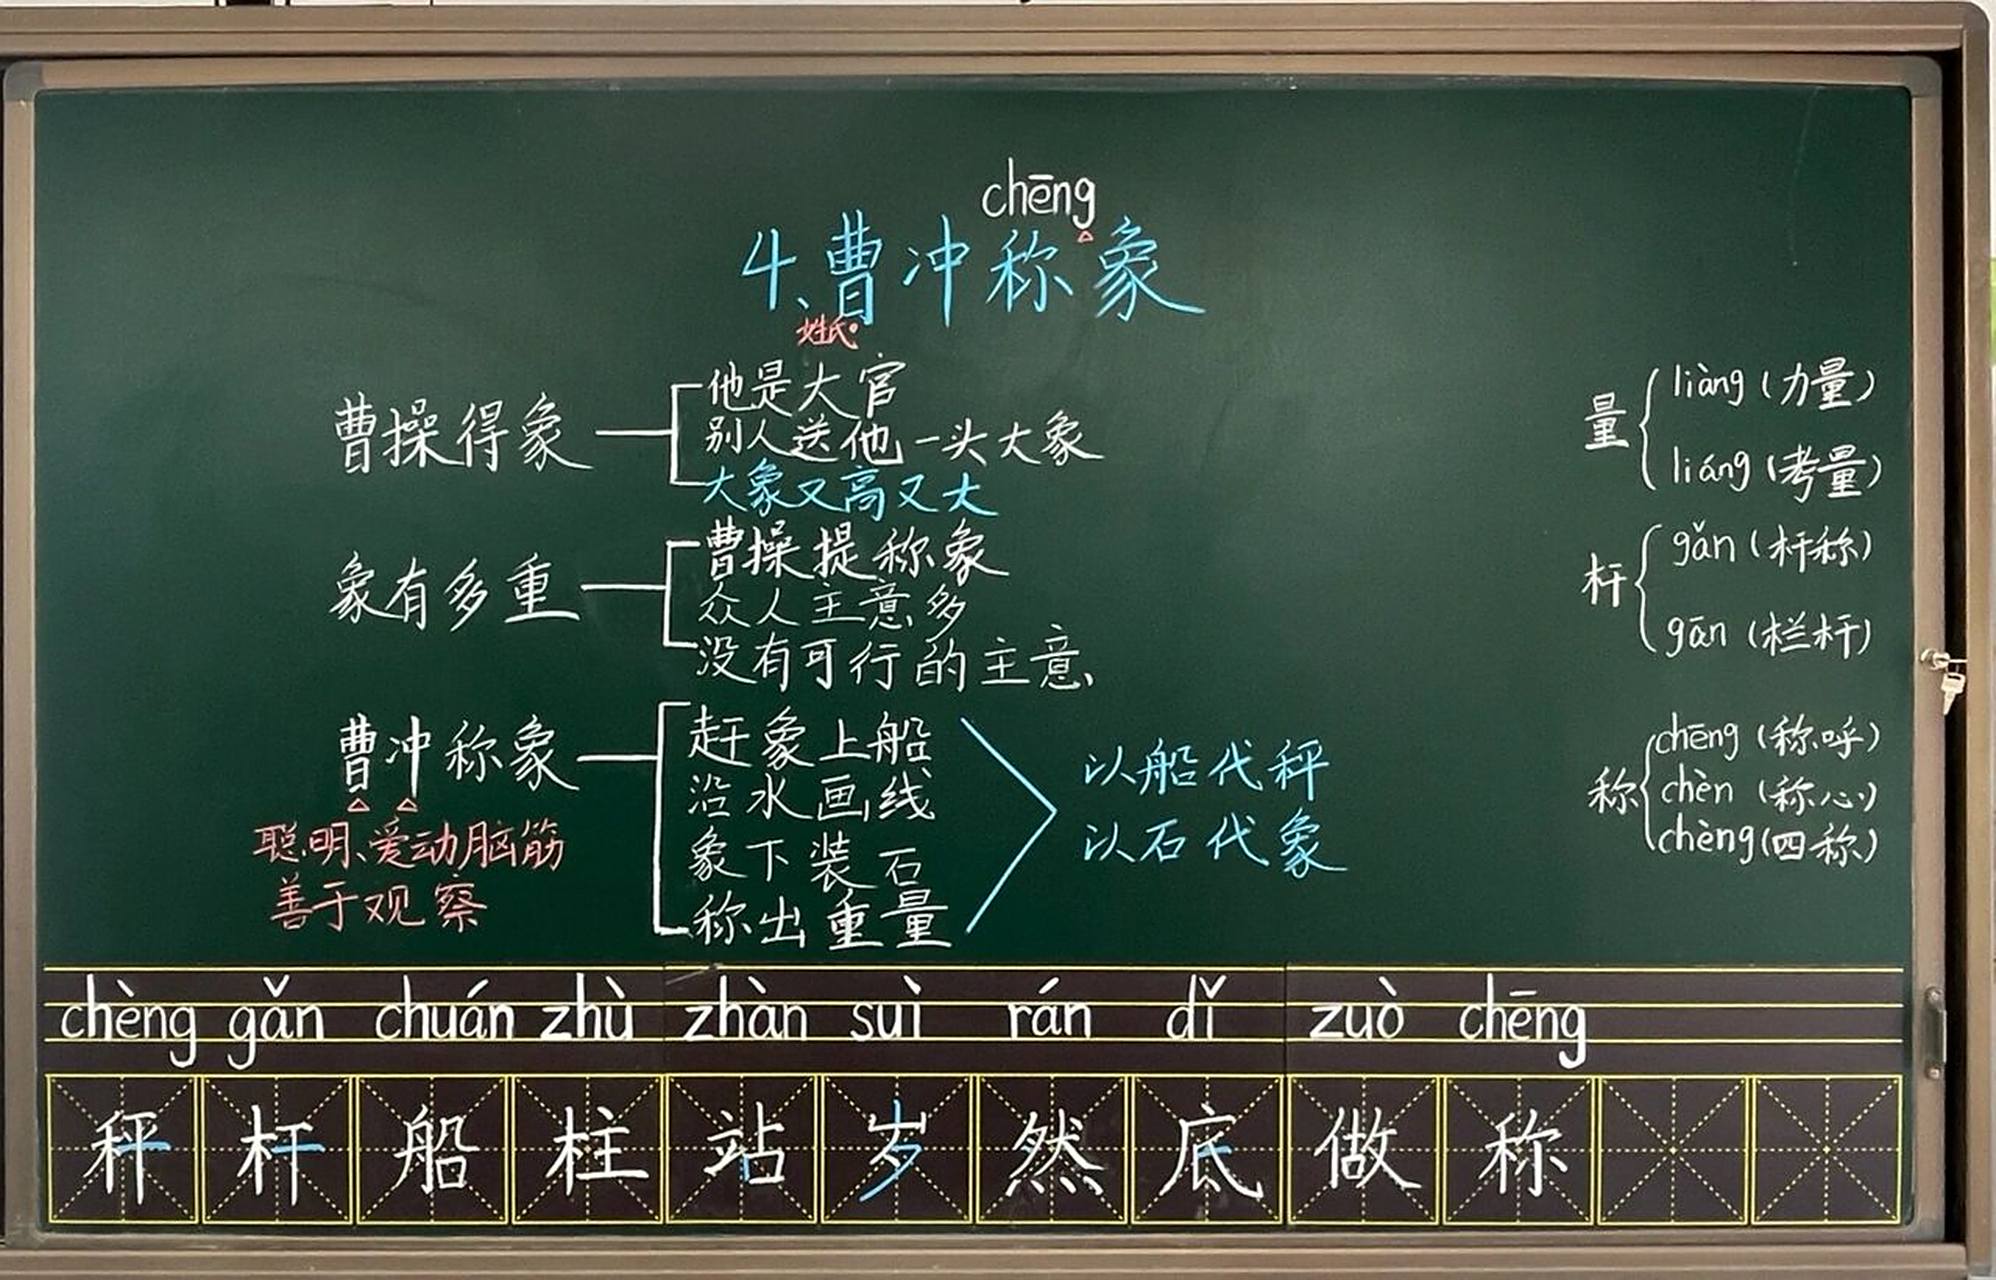 chēng
4、曹冲称象
姓氏
曹操得象
他是大官
别人送他一头大象
大象又高又大
象有多重
曹操提称象
众人主意多
没有可行的主意
曹冲称象
聪明、爱动脑筋
善于观察
赶象上船
沿水画线
象下装石
称出重量
以船代秤
以石代象
量
liàng(力量)
liáng(考量)
杆
gǎn(杆称)
gān(栏杆)
称
chēng(称呼)
chèn(称心)
chèng(四称)
chèng gǎn chuán zhù zhàn suì rán dǐ zuò chēng
秤 杆 船 柱 站 岁 然 底 做 称